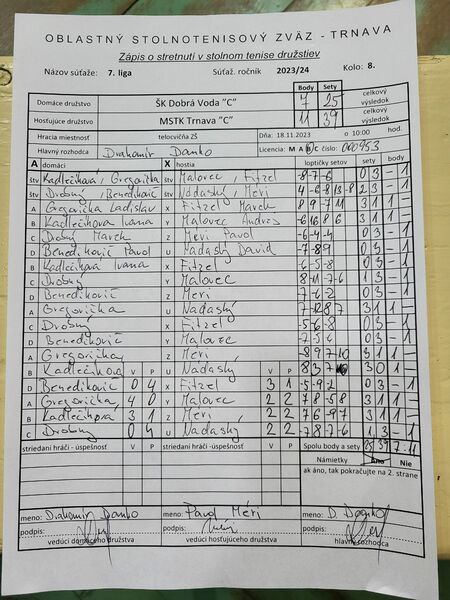 OBLASTNÝ STOLNOTENISOVÝ ZVÄZ - TRNAVA
Zápis o stretnutí v stolnom tenise družstiev
Názov súťaže: 7. liga Súťaž. ročník 2023/24 Kolo: 8.
Body Sety
Domáce družstvo ŠK Dobrá Voda "C" 7 25 celkový výsledok
Hosťujúce družstvo MSTK Trnava "C" 11 39 celkový výsledok
Hracia miestnosť telocvičňa ZŠ Dňa: 18.11.2023 o 10:00 hod.
Hlavný rozhodca Drahomír Danko Licencia: M A B C číslo:
A domáci X hostia loptičky setov sety body
štv Kadlečíková, Gregorička štv Malovec, Fitzel -8 -7 -6 0 3 - 1
štv Drobný, Benedikovič štv Nádaský, Méri 2 3 - 1
A Gregorička Ladislav X Fitzel Marek 8 9 -7 11 3 1 1
B Kadlečíková Ivana Y Malovec Andrej 3 1 1
C Drobný Marek Z Méri Pavol -6 -4 -4 0 3 - 1
D Benedikovič Pavol U Nádaský David -7 -8 9 0 3 - 1
B Kadlečíková Ivana X Fitzel -6 -5 -8 0 3 - 1
C Drobný Y Malovec 8 -11 -7 -6 1 3 - 1
D Benedikovič Z Méri -7 -6 -2 0 3 - 1
A Gregorička U Nádaský 3 1 1
C Drobný X Fitzel -5 -6 -8 0 3 - 1
D Benedikovič Y Malovec -7 -5 -6 0 3 - 1
A Gregorička Z Méri -8 9 7 10 3 1 1
B Kadlečíková V P U Nádaský V P 8 3 7 3 0 1
D Benedikovič 0 4 X Fitzel 3 1 -5 -9 -2 0 3 - 1
A Gregorička 4 0 Y Malovec 2 2 7 8 -5 8 3 1 1
B Kadlečíková 3 1 Z Méri 2 2 7 6 -9 7 3 1 1
C Drobný 0 4 U Nádaský 2 2 -7 8 -7 -6 1 3 - 1
striedaní hráči - úspešnosť V P striedaní hráči - úspešnosť V P Spolu body a sety 25 39 7:11
Námietky Áno Nie
ak áno, tak pokračujte na 2. strane
meno: Drahomír Danko meno: Pavol Méri meno: D. Danko
podpis: podpis: Méri podpis:
vedúci domáceho družstva vedúci hosťujúceho družstva hlavný rozhodca